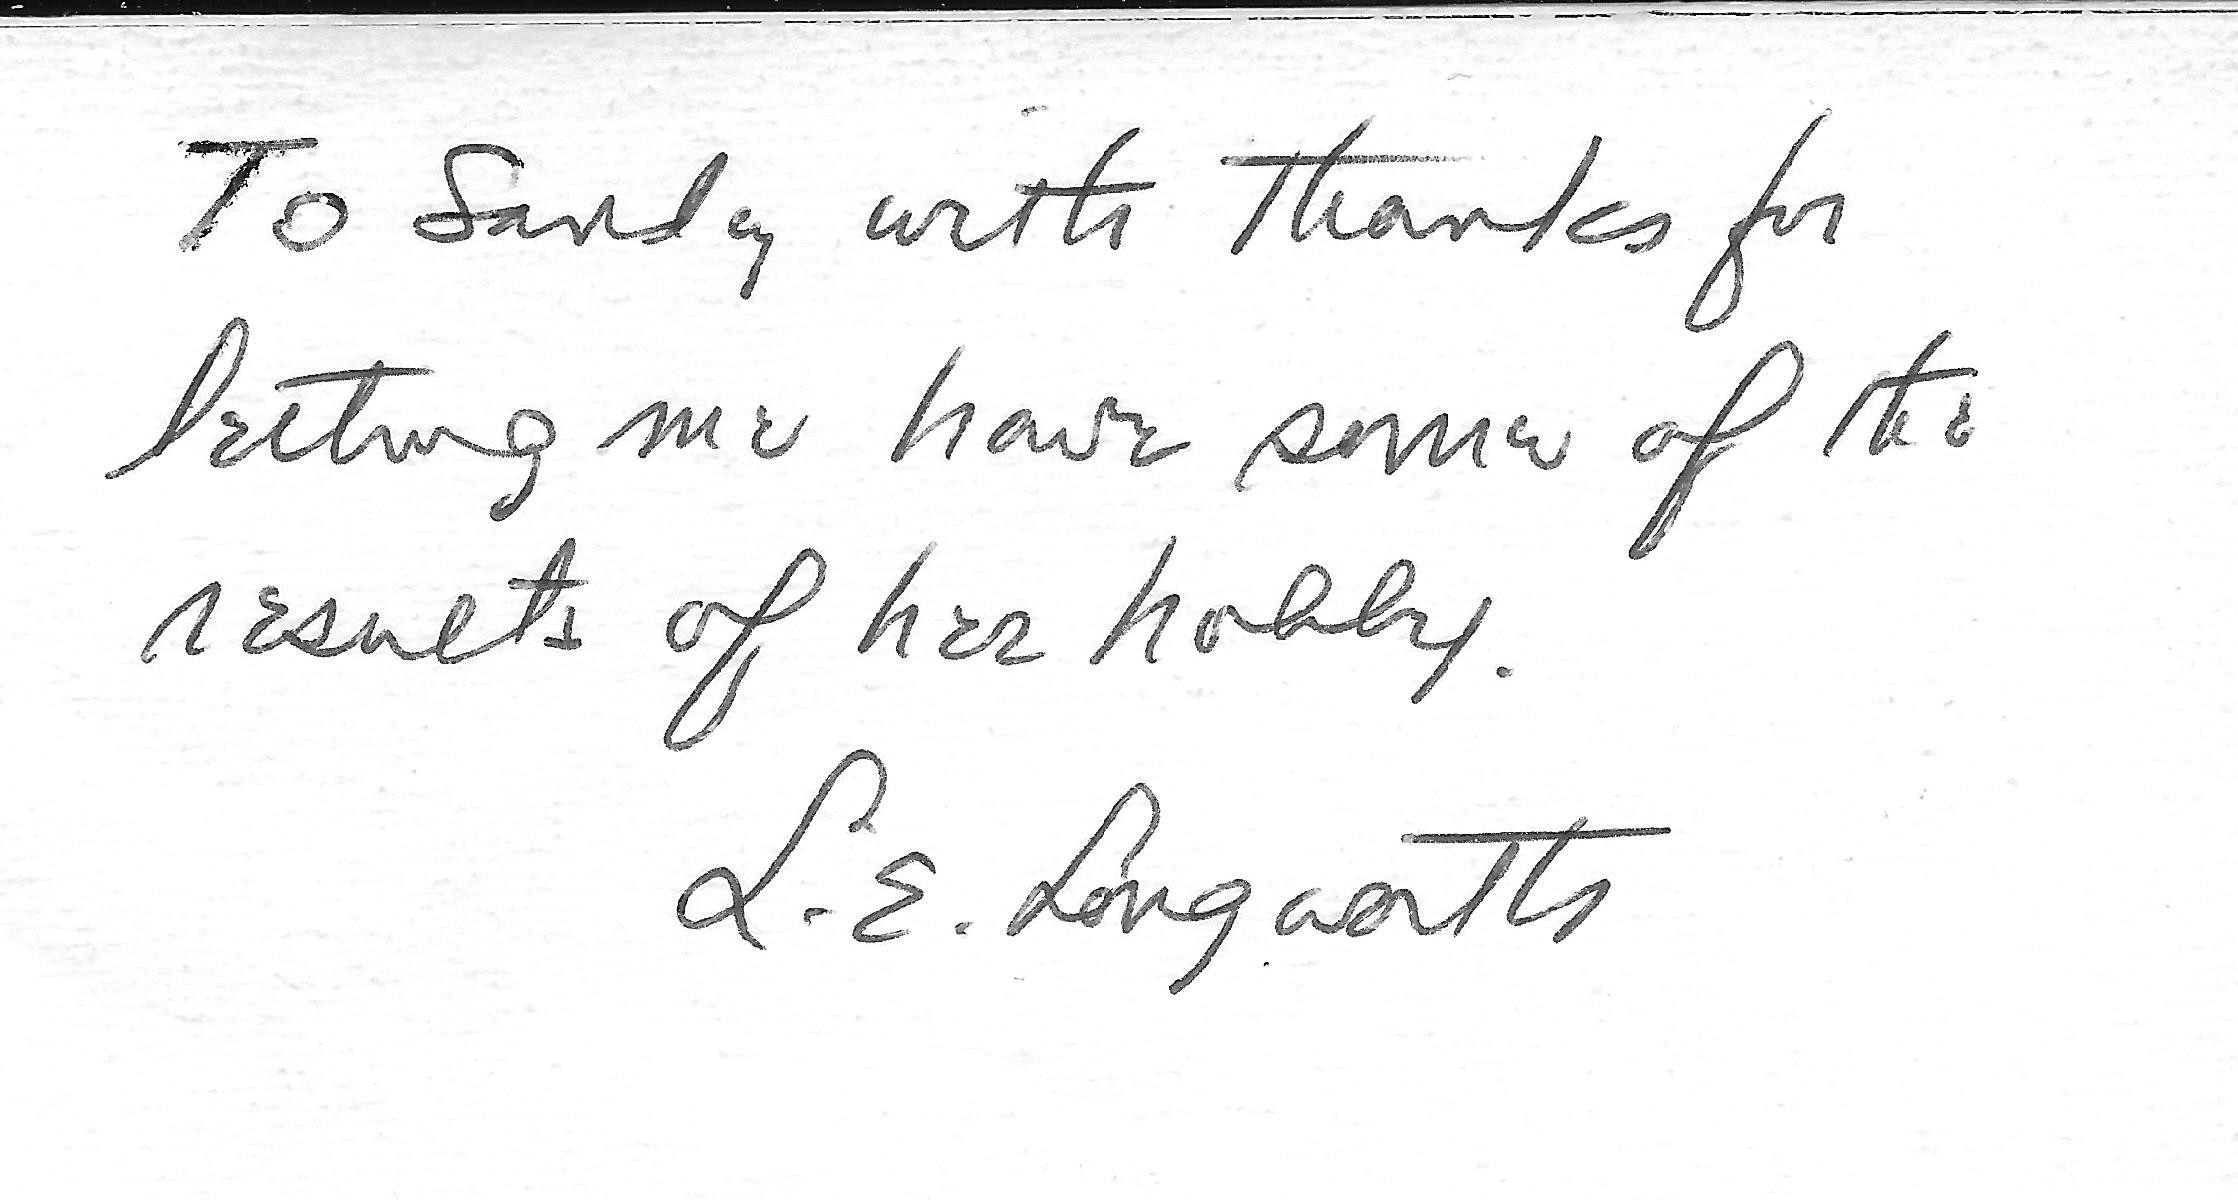 To Sandy with thanks for
letting me have some of the
results of her hobby.
L. E. Longworth